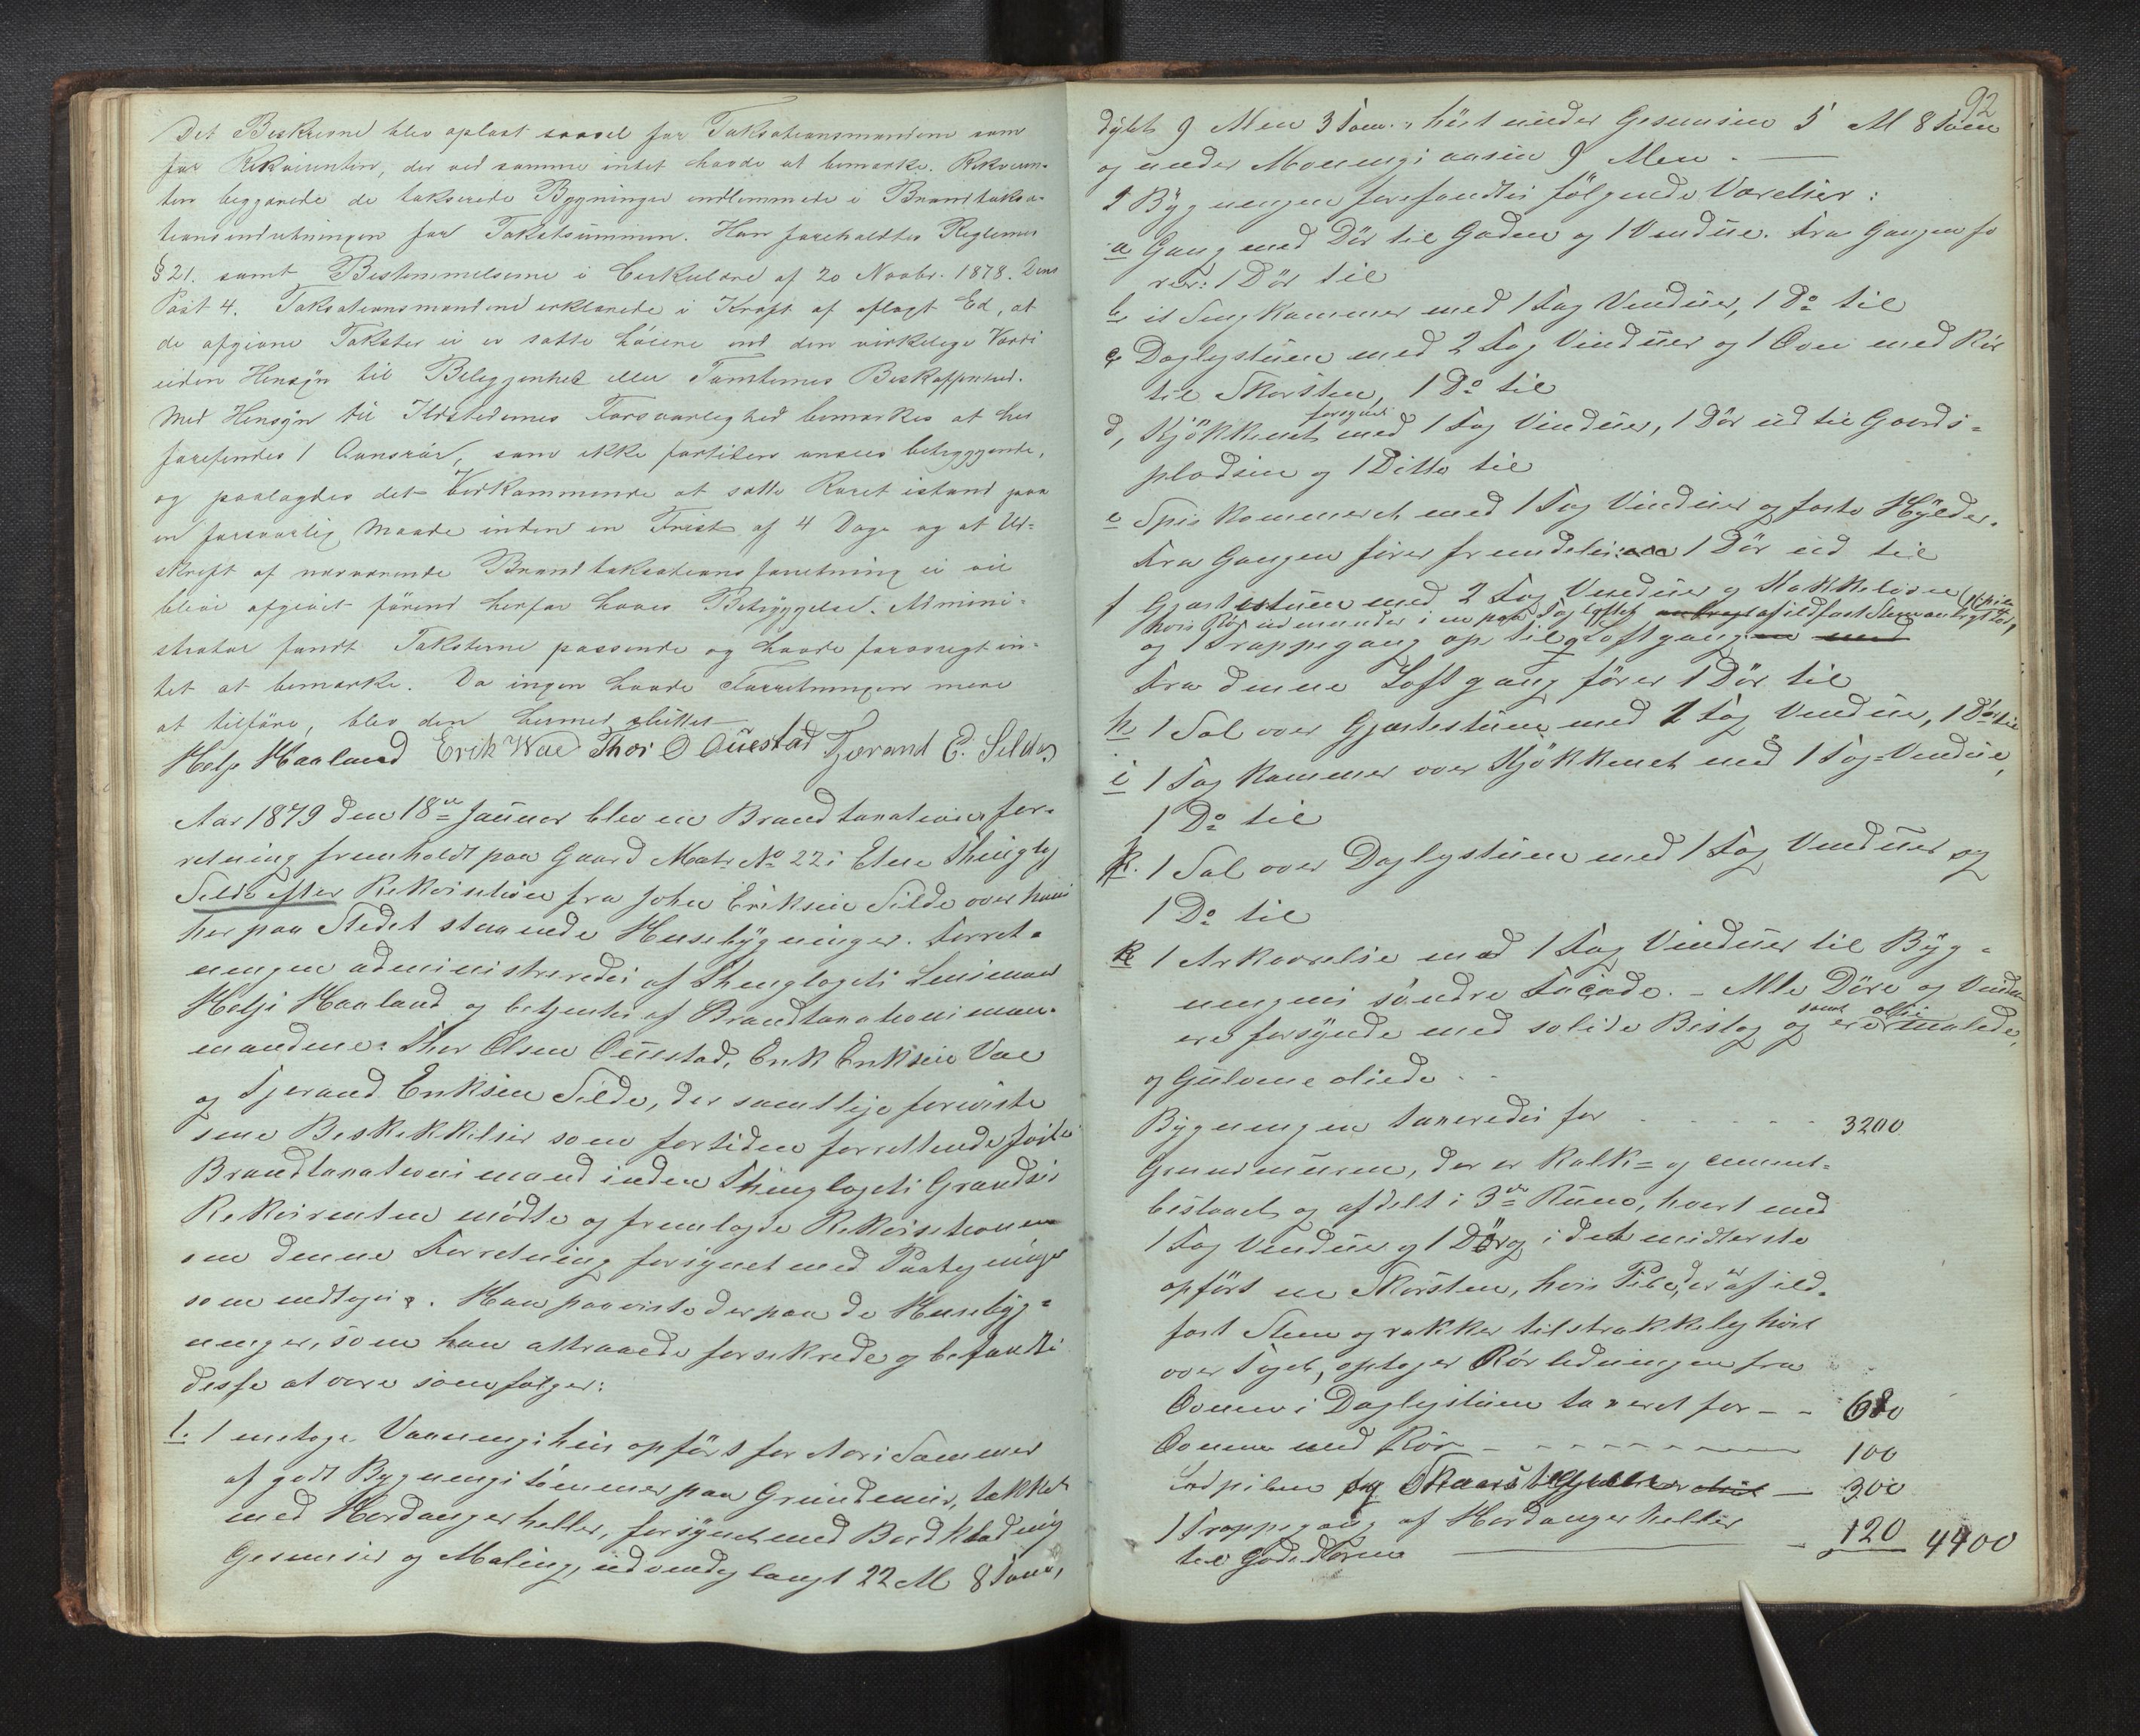 Det Beskrevne blev oplæst saavel for Taksationsmændene som
for Rekvirenten, der ved samme intet havde at bemærke. Rekviren-
ten begjærede de takserede Bygninger indlemmede i Brandtaksa-
tionsindretningen for Takstsummen. Han foreholdtes Reglemets
§ 21. samt Bestemmelserne i Cirkulære af 20 Novbr. 1878. Dens
Post 4. Taksationsmændene erklærede i Kraft af aflagt Ed, at
de afgivne Takster ei er satte høiere end den virkelige Værdi
uden Hensyn til Beliggenhed eller Tomternes Beskaffenhed.
Med Hensyn til Ildstedernes Forsvarlighed bemærkes at her
forefindes 1 Ovnsrør, som ikke fortiden ansees betryggende,
og paalagdes det Vedkommende at sætte Røret istand paa
en forsvarlig Maade inden en Frist af 4 Dage og at Ud-
skrift af nærværende Brandtaksationsforretning ei vil
blive afgivet førend herfor haves Betryggelse. Admini-
strator fandt Taksterne passende og havde forøvrigt in-
tet at bemærke. Da ingen havde Forretningen mere
at tilføre, blev den hermed sluttet
Helje Haaland Erik Vae Thor O Øuestad Tjerand E. Silde
Aar 1879 den 18de Januar blev en Brandtaxations for-
retning fremholdt paa Gaard Matr No 22 i Etne Thinglag
Silde efter Rekvisition fra John Eriksen Silde over hans
her paa Stedet staaende Husebygninger. Forret-
ningen administreredes af Thinglagets Lensmand
Helje Haaland og betjentes af Brandtaxationsmæn-
mændene: Thor Olsen Øuestad, Erik Eriksen Vae
og Tjerand Eriksen Silde, der samtlige foreviste
sine Beskikkelser som fortiden forrettende faste
Brandtaxationsmænd inden Thinglagets Grændser
Rekvirenten mødte og fremlagde Rekvisitionen
om denne Forretning forsynet med Paategning
som medtages. Han paaviste derpaa de Husebyg-
ninger, som han attraaede forsikrede og befandtes
disse at være som følger:
1. 1 enetages Vaaningshus opført for Aar i Sommer
af godt Bygningstømmer paa Grundmur, tækket
med Hardangerheller, forsynet med Bordklædning
Gesimser og Maling, udvendig langt 22 Al 8 Tom,
92
dybt 9 Alen 3 Tom. høit under Gesimsen 5 Al 8 Tom
og under Mønningsaasen 9 Alen. —
I Bygningen forefandtes følgende Værelser:
a Gang med Dør til Gaden og 1 Vindue. Fra Gangen fø
rer: 1 Dør til
b, et Sengkammer med 1 Fag Vinduer, 1 Do til
c Daglystuen med 2 Fag Vinduer og 1 Ovn med Rør
til Skorsten, 1 Do til
d, Kjøkkenet forsynet med 1 Fag Vinduer, 1 Dør ud til Gaards-
pladsen og 1 Ditto til
e Spiskammeret med 1 Fag Vinduer og faste Hylder.
Fra Gangen fører fremdeles 1 Dør ud til
f Gjæstestuen med 2 Fag Vinduer og Kakkelovn
hvis Rør udmunder i en paa Loftet af ildfast Sten
og 1 Trappegang op til g Loftgang
Fra denne Loftgang fører 1 Dør til
h 1 Sal over Gjæstestuen med 1 Fag Vindue, 1 Do til
i 1 Fag Kammer over Kjøkkenet med 1 Fag Vindue,
1 Do til
k. 1 Sal over Daglystuen med 1 Fag Vinduer og
1 Do til
1 Arkværelse med 1 Fag Vinduer til Byg-
ningens søndre Façade. – Alle Døre og Vinduer
ere forsynede med solide Beslag og samt oliemalede,
og Gulvene oliede. .
Bygningen taxeredes for . . . . . 3200
Grundmuren, der er kalk= og cement-
beslaaet og afdelt i 3de Rum, hvert med
1 Fag Vinduer og 1 Dør og i det midterste
opført en Skorsten, hvis Pibe, der er af ild-
fast Sten og rækker tilstrækkelig høit
over Taget, optager Rørledningen fra
Ovnen i Daglystuen taxeret for – – 680
Ovnene med Rør – – – – – 100
— 300
1 Trappegang af Hardangerheller
til Gadedøren — 120 4400